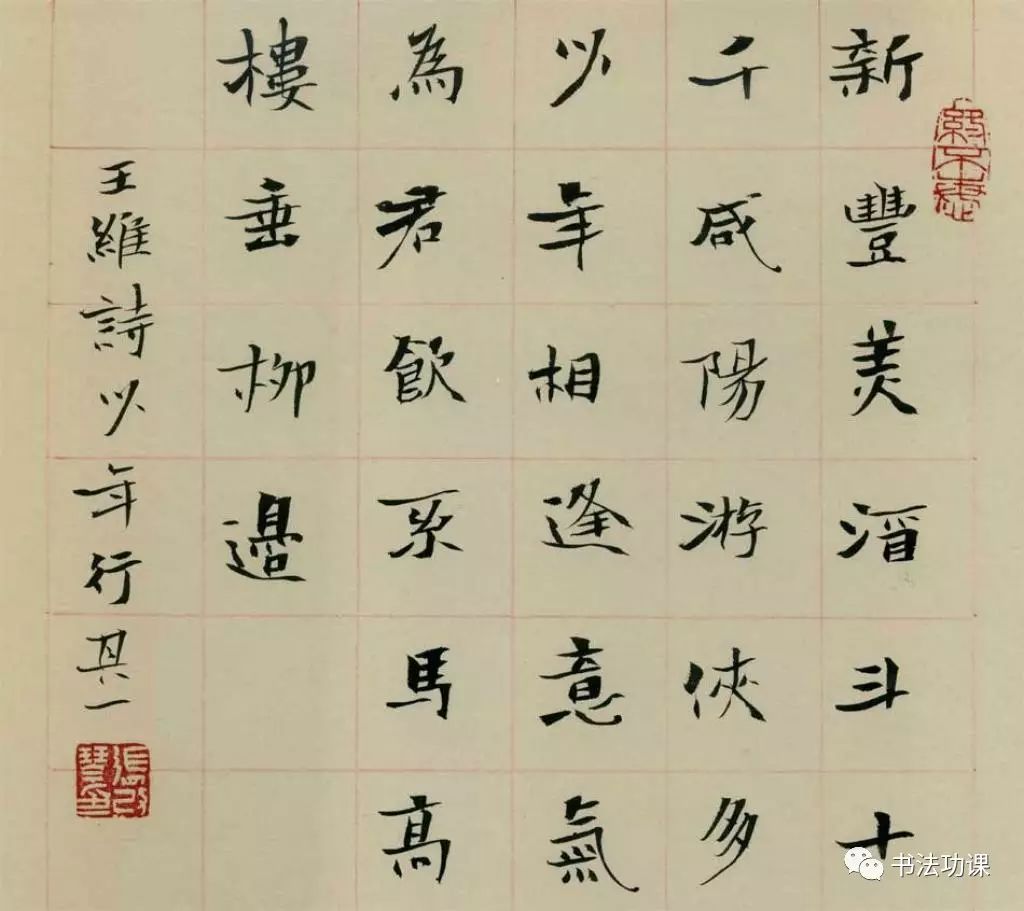 新豐美酒斗十
千咸陽游俠多
少年相逢意氣
為君飲系馬高
樓垂柳邊
王維詩少年行其一
书法功课